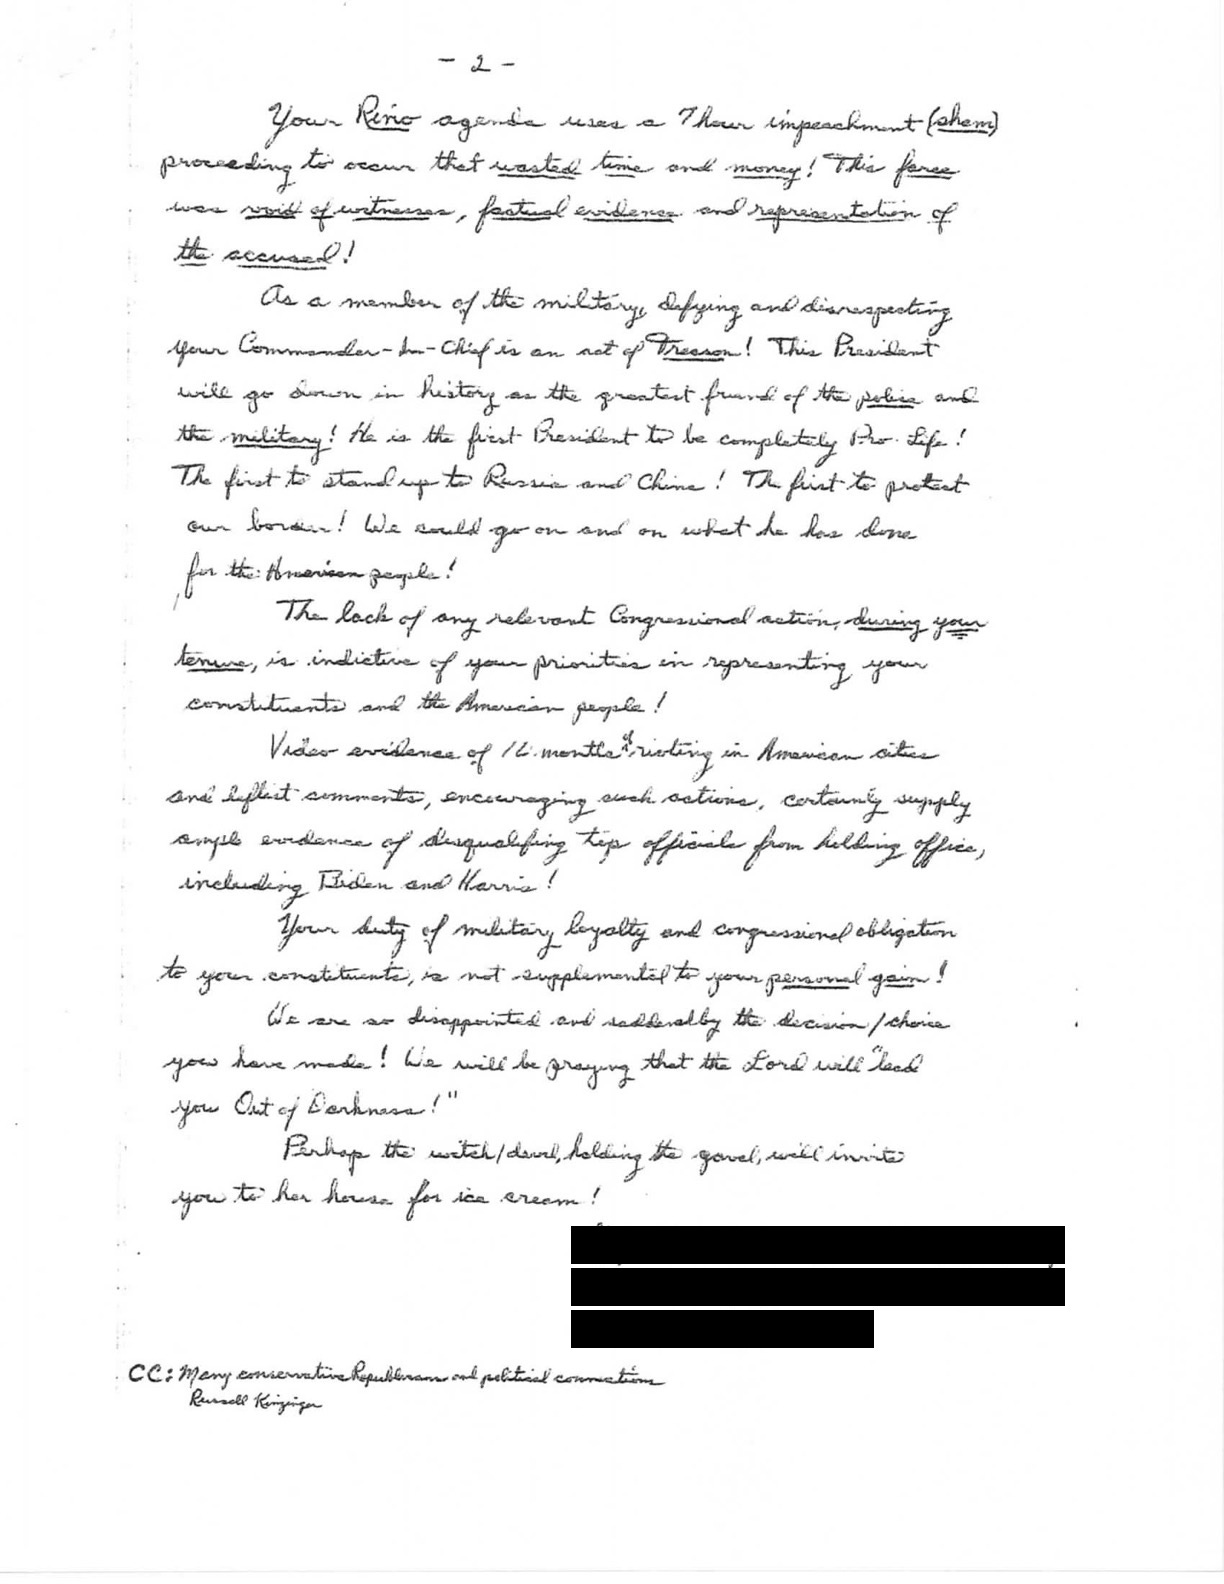 - 2 -
Your Rino agenda uses a 7 hour impeachment (sham)
proceeding to occur that wasted time and money! This farce
was void of witnesses, factual evidence and representation of
the accused!
As a member of the military, defying and disrespecting
your Commander-In-Chief is an act of Treason! This President
will go down in history as the greatest friend of the police and
the military! He is the first President to be completely Pro-Life!
The first to stand up to Russia and China! The first to protect
our border! We could go on and on what he has done
for the American people!
The lack of any relevant Congressional action, during your
tenure, is indictive of your priorities in representing your
constituents and the American people!
Video evidence of months of rioting in American cities
and leftist comments, encouraging such actions, certainly supply
ample evidence of disqualifing top officials from holding office,
including Biden and Harris!
Your duty of military loyalty and congressional obligation
to your constituents, is not supplemental to your personal gain!
We are so disappointed and saddened by the decision/choice
you have made! We will be praying that the Lord will "lead
you Out of Darkness!"
Perhap the witch/devil, holding the gavel, will invite
you to her house for ice cream!
CC: Many conservative Republicans and political connections
Russell Kinzinger